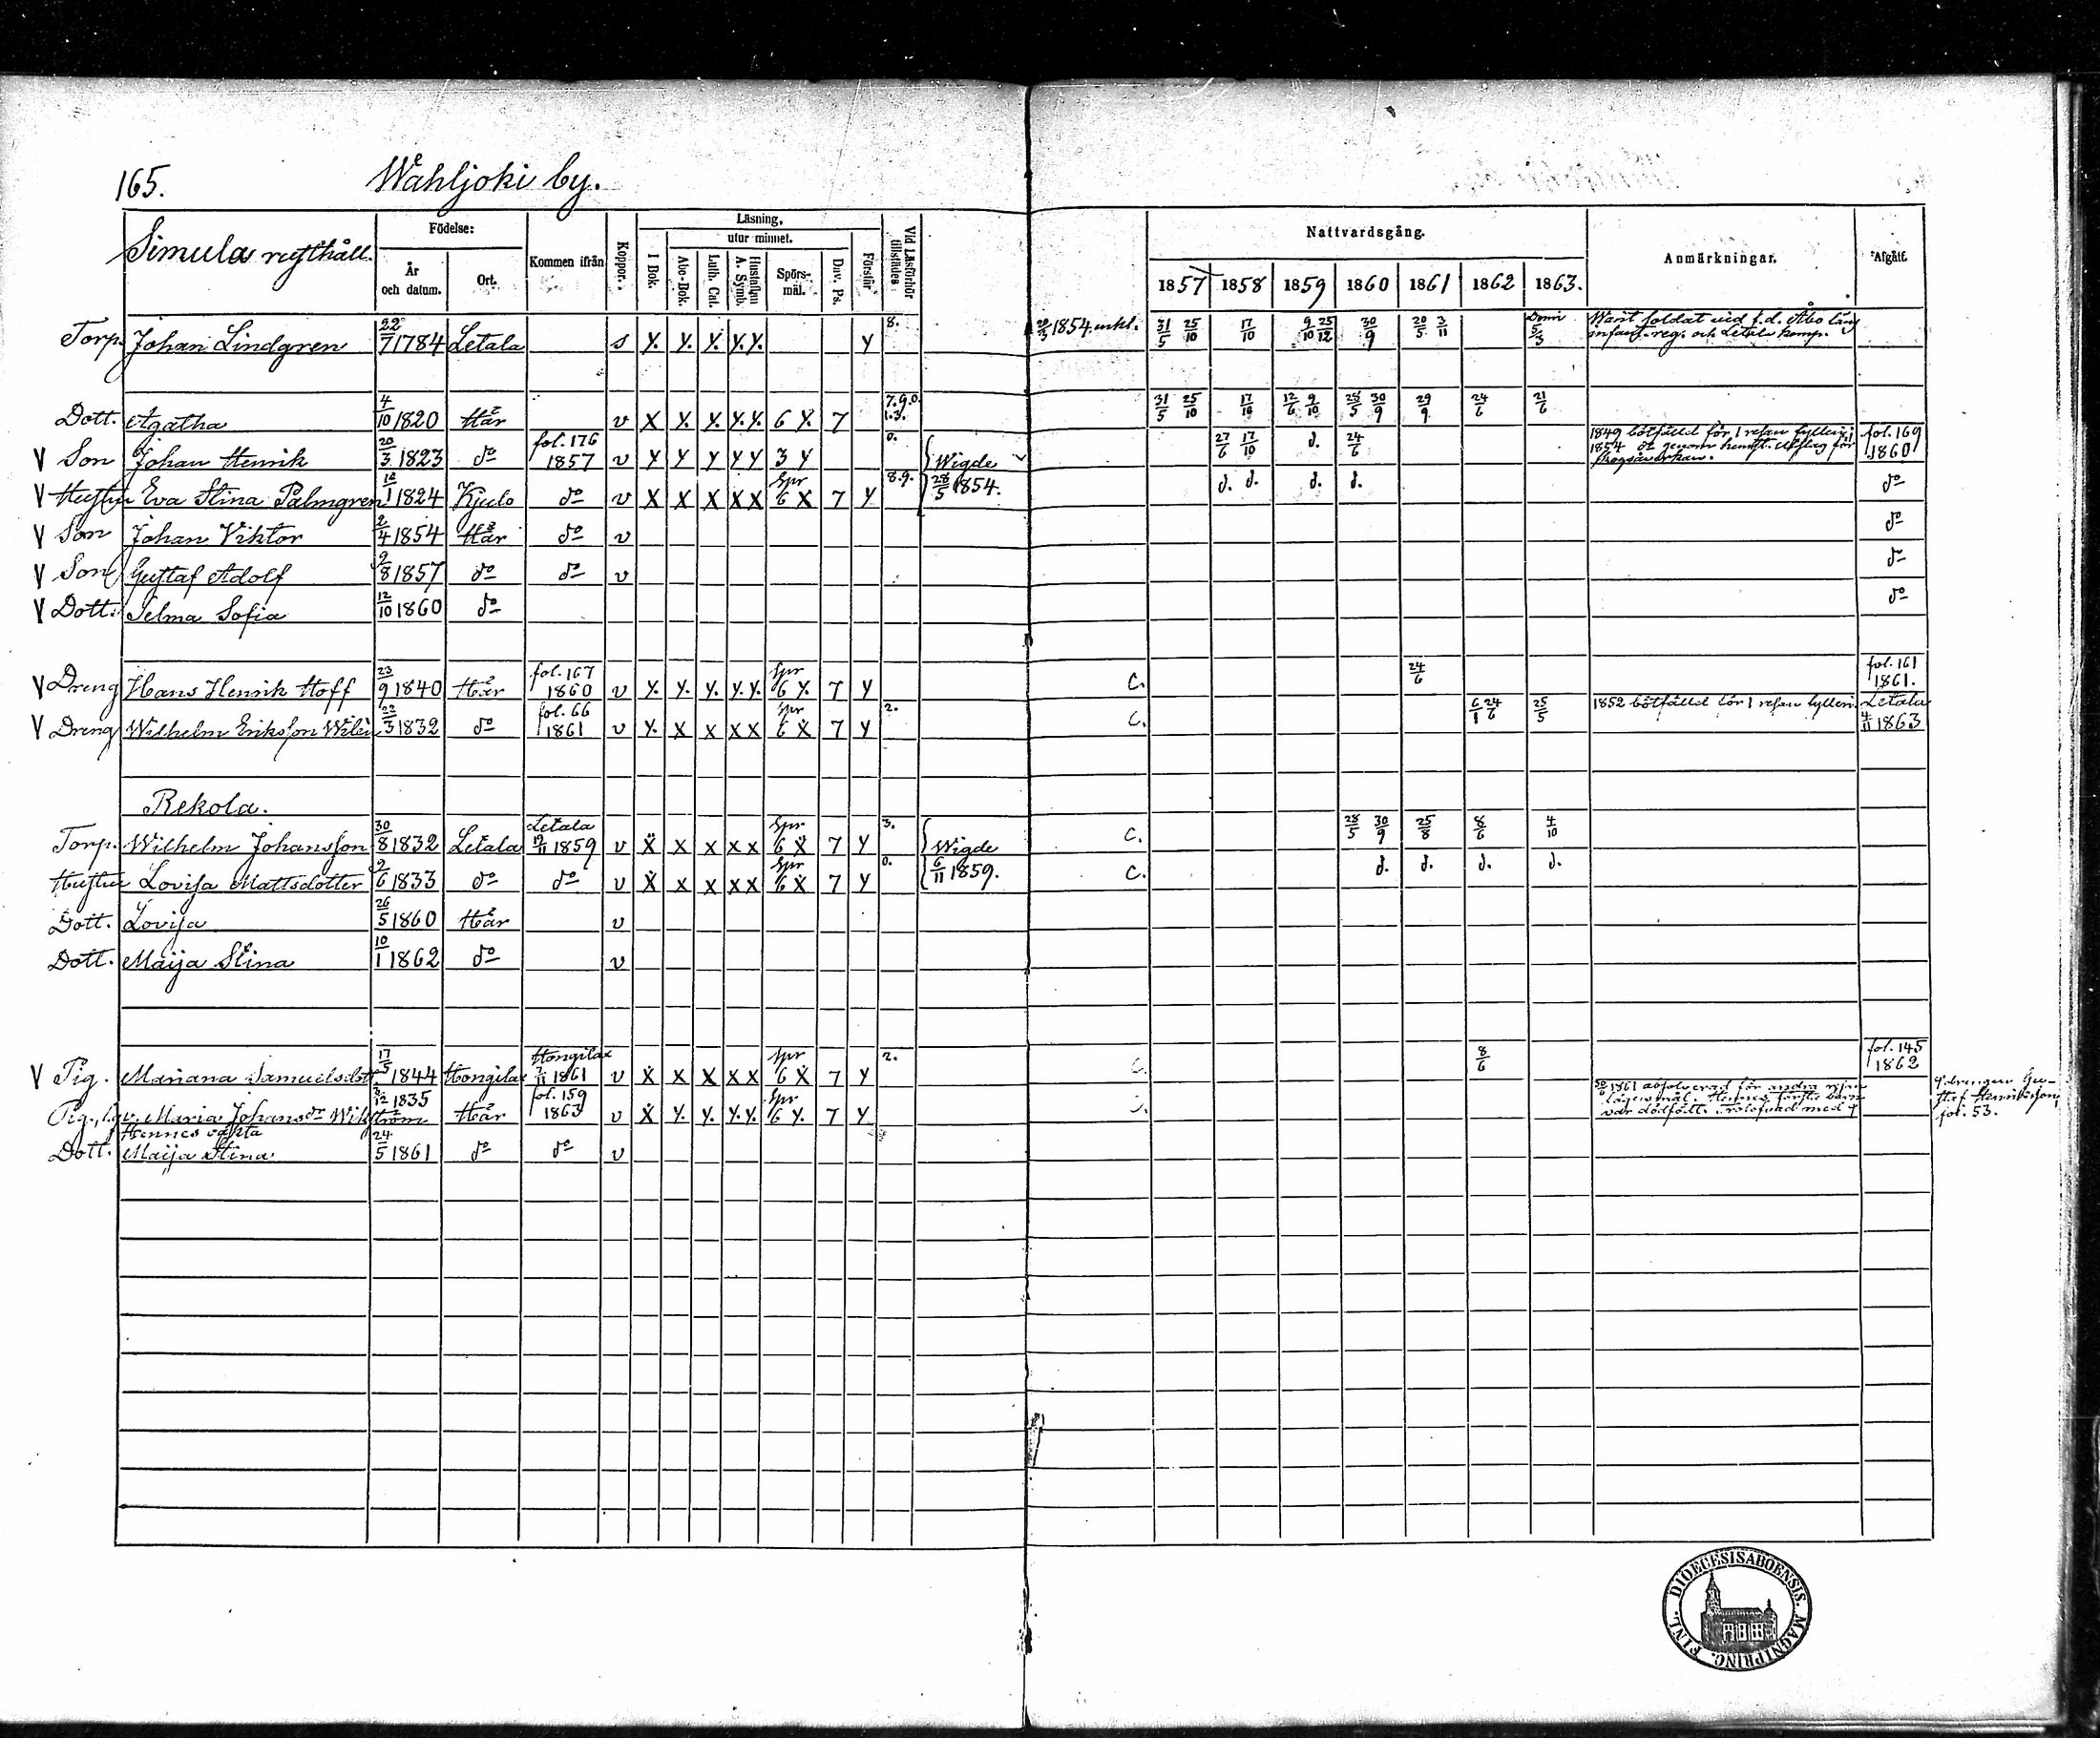 165. Wåhljoki by.
Simula rusthåll.
Födelse:
År och datum.
Ort.
Kommen ifrån
Koppor.
Läsning,
utur minnet.
I Bok.
Abc-Bok.
Luth. Cat.
Hustaflan A. Symb.
Spörs-mål.
Dav. Ps.
Förstår
Vid Läsförhör tillstädes
Nattvardsgång.
1857 1858 1859 1860 1861 1862 1863.
Anmärkningar.
Afgått.
Torp. Johan Lindgren 22/7 1784 Letala s Y. Y. Y. Y. Y. Y 8. 20/3 1854 enkl. 31/5 25/10 17/10 9/10 25/12 30/9 20/5 3/11 5/3 Warit soldat vid f.d. Åbo läns
infant. reg. och Letala komp.
Dott. Agatha 4/10 1820 Här v X Y. Y. Y. Y. 6 Y. 7 7.9.0. 1.3. 31/5 25/10 17/10 12/6 9/10 28/5 30/9 29/9 24/6 21/6
V Son Johan Henrik 20/3 1823 do fol. 176 1857 v Y Y Y Y Y 3 Y 0. Wigde 27/6 17/10 d. 24/6 1849 bötfälld för 1 resan fylleri;
1854 för
skogsåverkan. fol. 169 1860
V Hustru Eva Stina Palmgren 1824 Kjulo do v X X X X X Spr 6 X 7 Y 8.9. 28/5 1854. d. d. d. d. do
V Son Johan Viktor 2/4 1854 Här do v do
V Son Gustaf Adolf 9/8 1857 do do v do
V Dott. Selma Sofia 12/10 1860 do do
V Dreng Hans Henrik Hoff 23/9 1840 Här fol. 167 1860 v Y. Y. Y. Y. Y. Spr 6 Y. 7 Y C. 24/6 fol. 161 1861.
V Dreng Wilhelm Eriksson Wilén 22/3 1832 do fol. 66 1861 v Y. X X X X Spr 6 X 7 Y 2. C. 6/1 24/6 25/5 1852 bötfälld för 1 resan fylleri. Letala 4/11 1863
Rekola.
Torp. Wilhelm Johansson 30/8 1832 Letala Letala 12/11 1859 v X X X X X Spr 6 X 7 Y 3. Wigde C. 28/5 30/9 25/8 8/6 4/10
Hustru Lovisa Mattsdotter 9/6 1833 do do v X X X X X Spr 6 X 7 Y 0. 6/11 1859. C. d. d. d. d.
Dott. Lovisa 26/5 1860 Här v
Dott. Maija Stina 10/1 1862 do v
V Pig. Mariana Samuelsdott. 17/5 1844 Hongilax Hongilax 7/11 1861 v X X X X X Spr 6 X 7 Y 2. C. 8/6 fol. 145 1862
Pig., Maria Johansdr Wikström 2/12 1835 Här fol. 159 1863 v X Y. Y. Y. Y. Spr 6 Y. 7 Y 1861 absolverad för andra resan
lägersmål. Hennes första barn
var dödfödt. Trolofvad med
drengen Gu-
staf Henriksson,
fol. 53.
Hennes oäkta
Dott. Maija Stina 24/5 1861 do do v
DIOECESIS ABOENSIS. MAGNI PRINC. FINL.